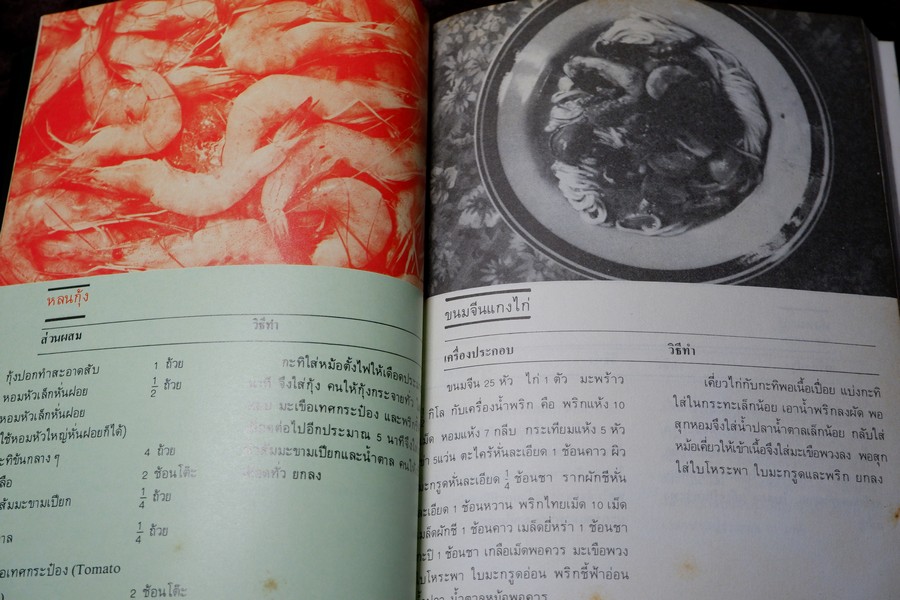 หลนกุ้ง
ส่วนผสม
วิธีทำ
กุ้งปอกทำสะอาดสับ 1 ถ้วย
หอมหัวเล็กหั่นฝอย 1/2
หอมหัวเล็กหั่นฝอย
ใช้หอมหัวใหญ่หั่นฝอยก็ได้)
กะทิข้นกลาง ๆ 4 ถ้วย
2 ช้อนโต๊ะ
ส้มมะขามเปียก 1/4 ถ้วย
1/4 ถ้วย
มะเขือเทศกระป๋อง (Tomato
2 ช้อนโต๊ะ
กะทิใส่หม้อตั้งไฟให้เดือด
นาที จึงใส่กุ้ง คนให้กุ้งกระจายทั่ว
มะเขือเทศกระป๋อง และพริก
ต่อไปอีกประมาณ 5 นาทีจึง
ส้มมะขามเปียกและน้ำตาล คน
ยกลง
ขนมจีนแกงไก่
เครื่องประกอบ
วิธีทำ
ขนมจีน 25 หัว ไก่ 1 ตัว มะพร้าว
กิโล กับเครื่องน้ำพริก คือ พริกแห้ง 10
เม็ด หอมแห้ง 7 กลีบ กระเทียมแห้ง 5 หัว
ข่า 5 แว่น ตะไคร้หั่นละเอียด 1 ช้อนคาว ผิว
มะกรูดหั่นละเอียด 1/4 ช้อนชา รากผักชีหั่น
ละเอียด 1 ช้อนหวาน พริกไทยเม็ด 10 เม็ด
เมล็ดผักชี 1 ช้อนคาว เมล็ดยี่หร่า 1 ช้อนชา
กะปิ 1 ช้อนชา เกลือเม็ดพอควร มะเขือพวง
ใบโหระพา ใบมะกรูดอ่อน พริกชี้ฟ้าอ่อน
น้ำปลา น้ำตาลหม้อพอควร
เคี่ยวไก่กับกะทิพอเนื้อเปื่อย แบ่งกะทิ
ใส่ในกระทะเล็กน้อย เอาน้ำพริกลงผัด พอ
สุกหอมจึงใส่น้ำปลาน้ำตาลเล็กน้อย กลับใส่
หม้อเคี่ยวให้เข้าเนื้อจึงใส่มะเขือพวงลง พอสุก
ใส่ใบโหระพา ใบมะกรูดและพริก ยกลง